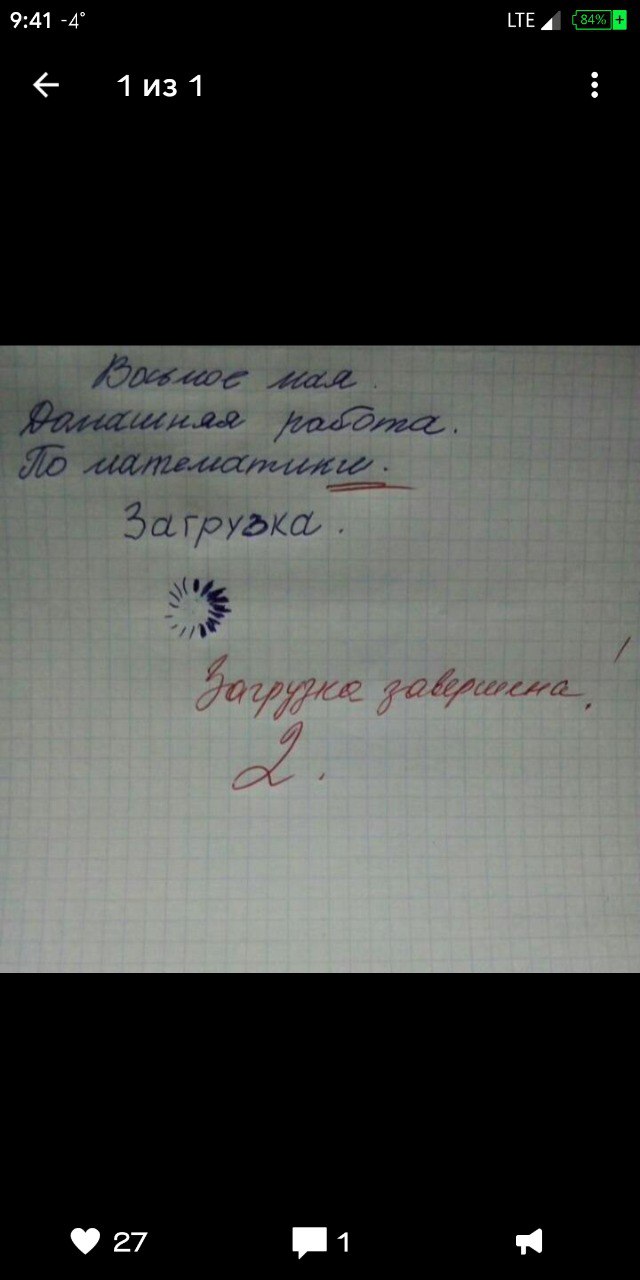 9:41 -4°
LTE
84%
1 из 1
Восьмое мая.
Домашняя работа.
По математики.
Загрузка.
Загрузка завершена!
2.
27
1